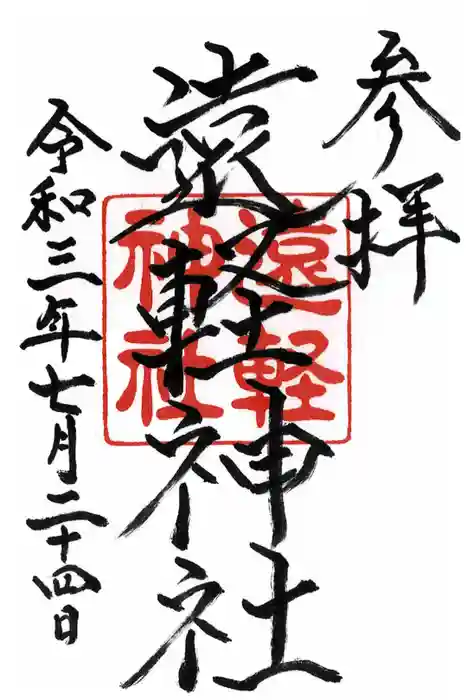 参拝
遠軽神社
遠軽
神社
令和三年七月二十四日